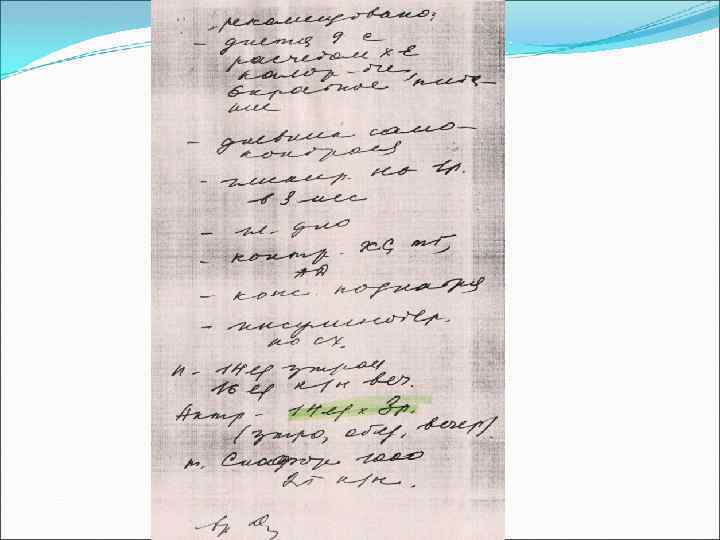 рекомендовано:
- диета 9 с
расчетом ХЕ
калор-ти,
6 кратное пита-
ние
- дневник само-
контроля
- гликир. Hb 1р.
в 3 мес
- гл. дно
- контр. ХС, ТГ,
АД
- конс. подиатра
- инсулинотер.
по сх.
14 ед утром
16 ед п/н веч.
Актр - 14 ед х 3р.
(утро, обед, вечер).
т. Сиофор 1000
2т п/н.
вр